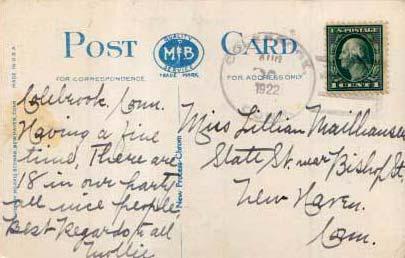 POST CARD
QUALITY
M&B
SERVICE
TRADE MARK
FOR CORRESPONDENCE
FOR ADDRESS ONLY
MADE IN U.S.A.
New Process-Chrom
Colebrook, Conn.
Having a fine
time. There are
18 in our party
all nice people,
Best Regards to all
Mollie
AUG
1922
1 CENT 1
Miss Lillian Mailhausen
State St. near Bishop St.
New Haven.
Conn.